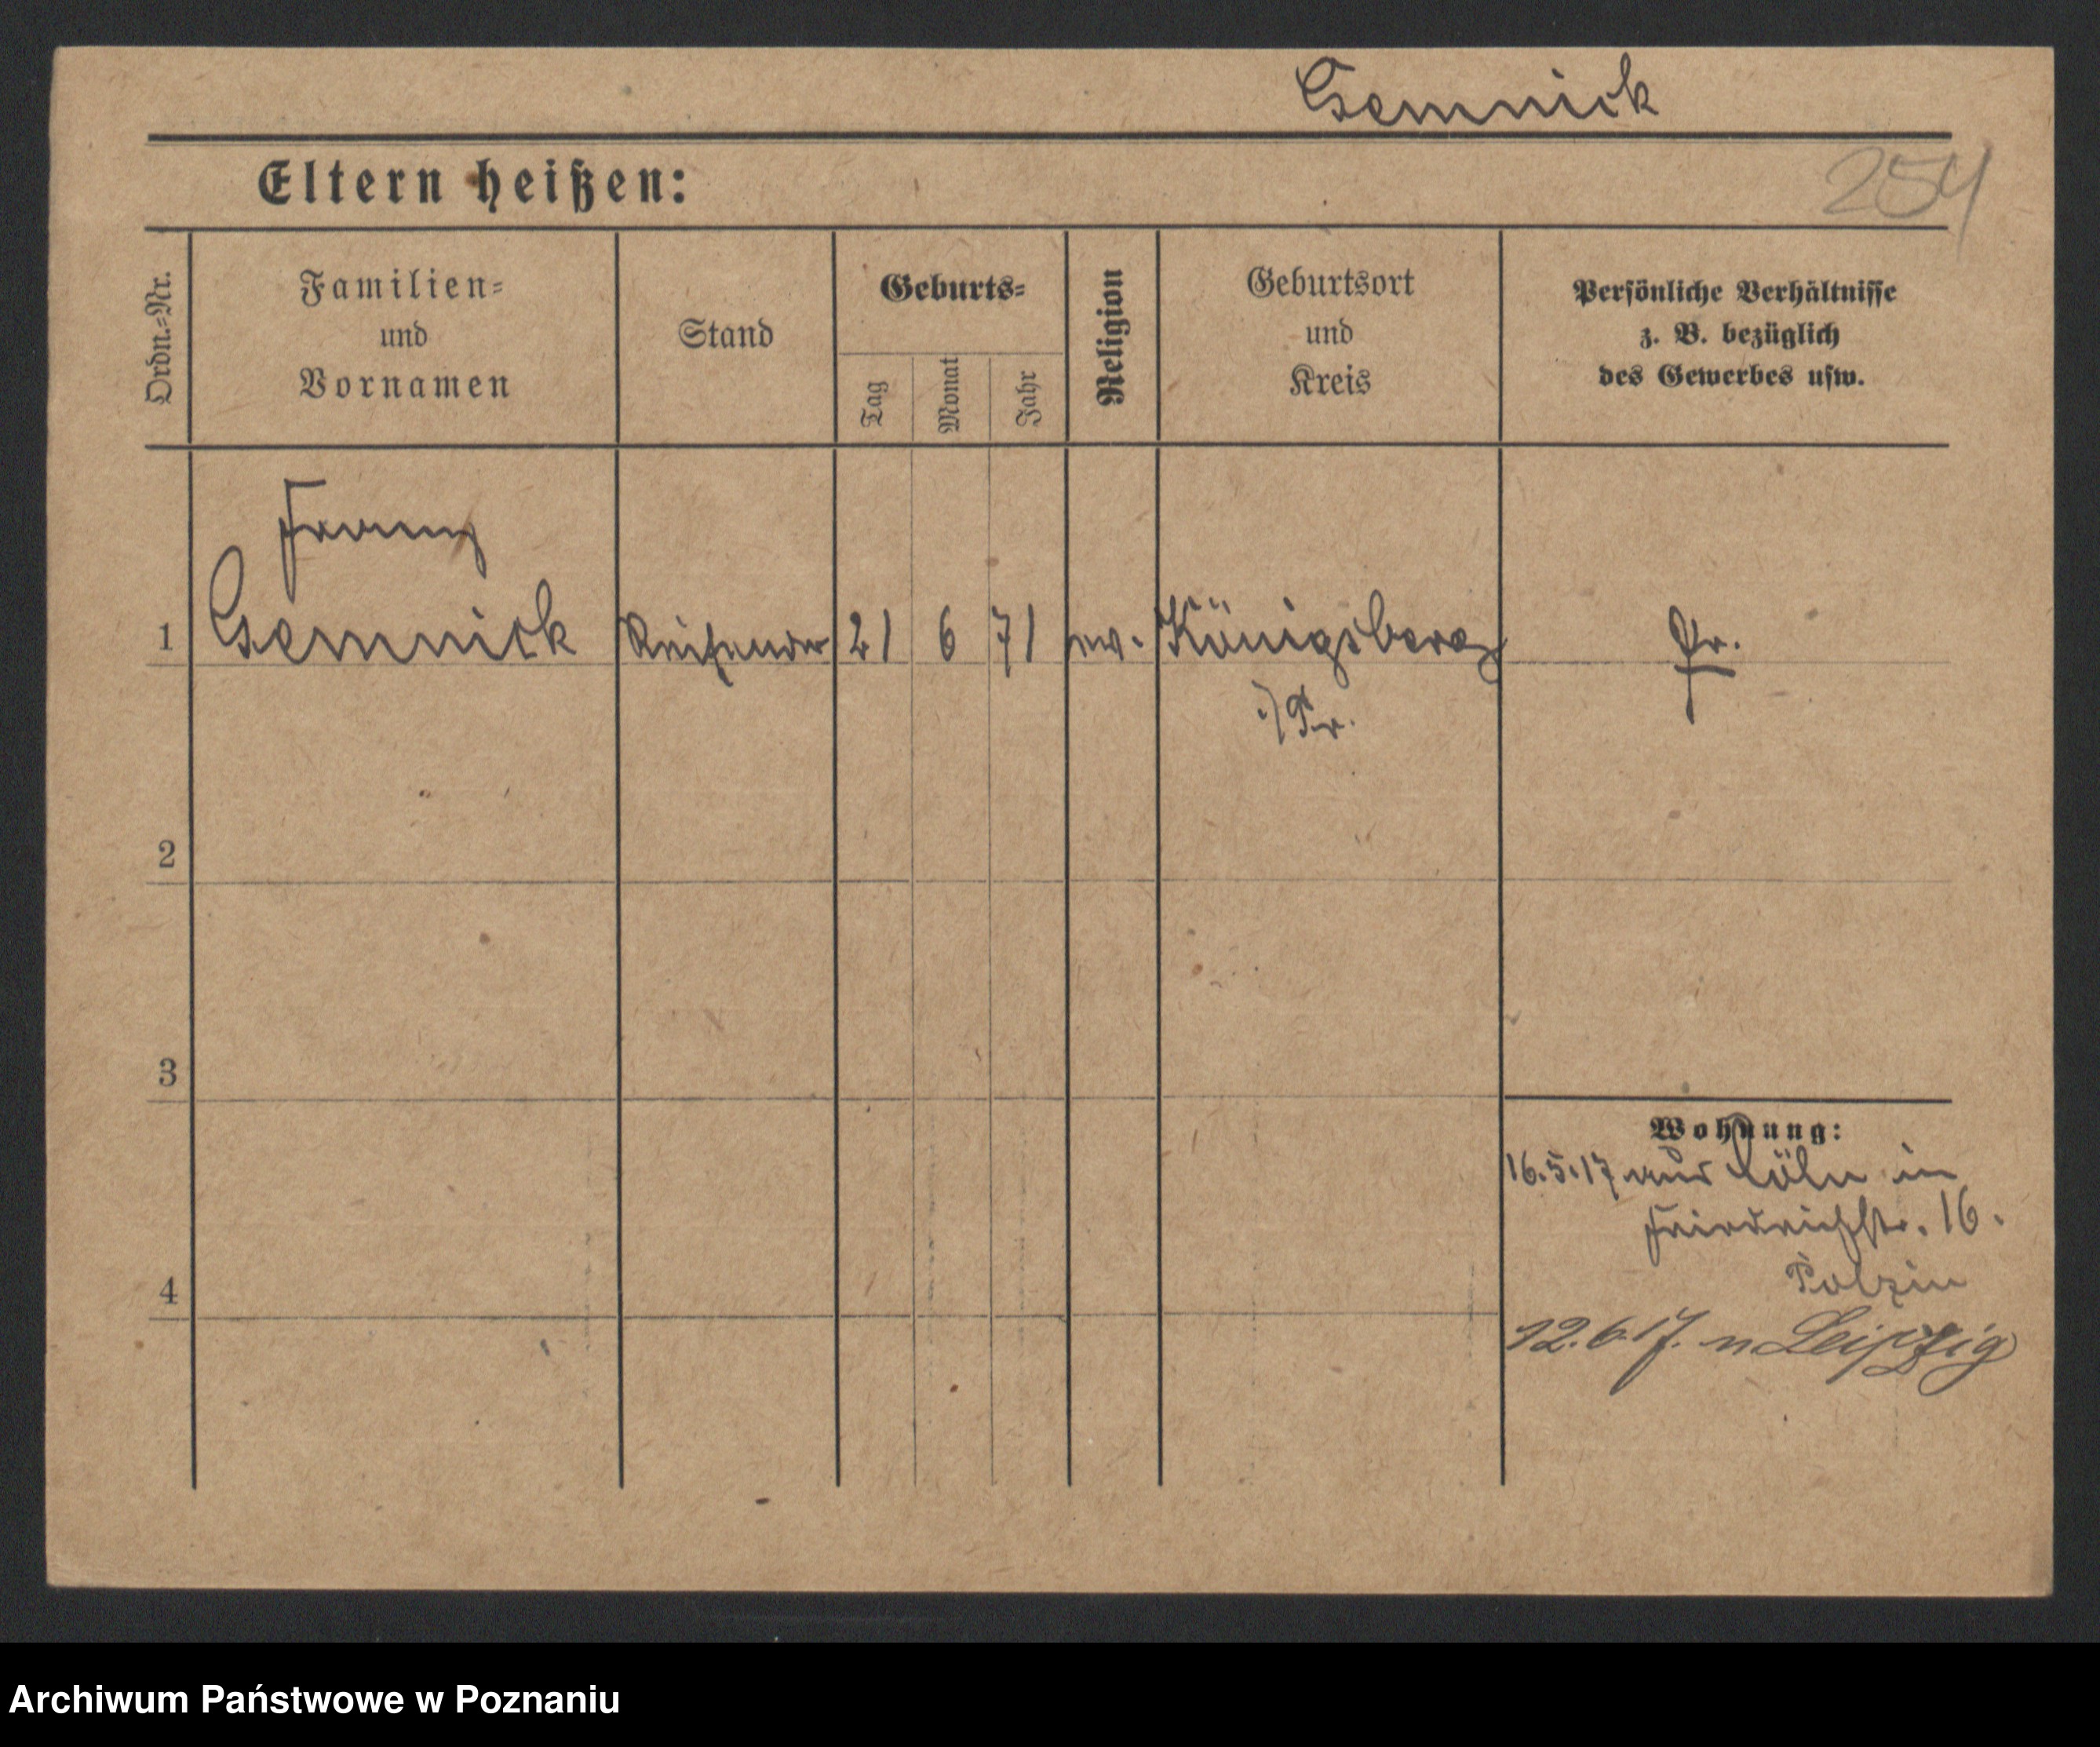 Gemnick
254
Eltern heißen:
Ordn.=Nr.
Familien=
und
Vornamen
Stand
Geburts=
Tag
Monat
Jahr
Religion
Geburtsort
und
Kreis
Persönliche Verhältnisse
z. B. bezüglich
des Gewerbes usw.
Franz
1 Gemnick Reisender 21 6 71 ev. Königsberg Pr.
i/Pr.
2
3
Wohnung:
16.5.17 aus Cöln in
Friedrichstr. 16.
Polzin
4
12.6.17. n Leipzig
Archiwum Państwowe w Poznaniu